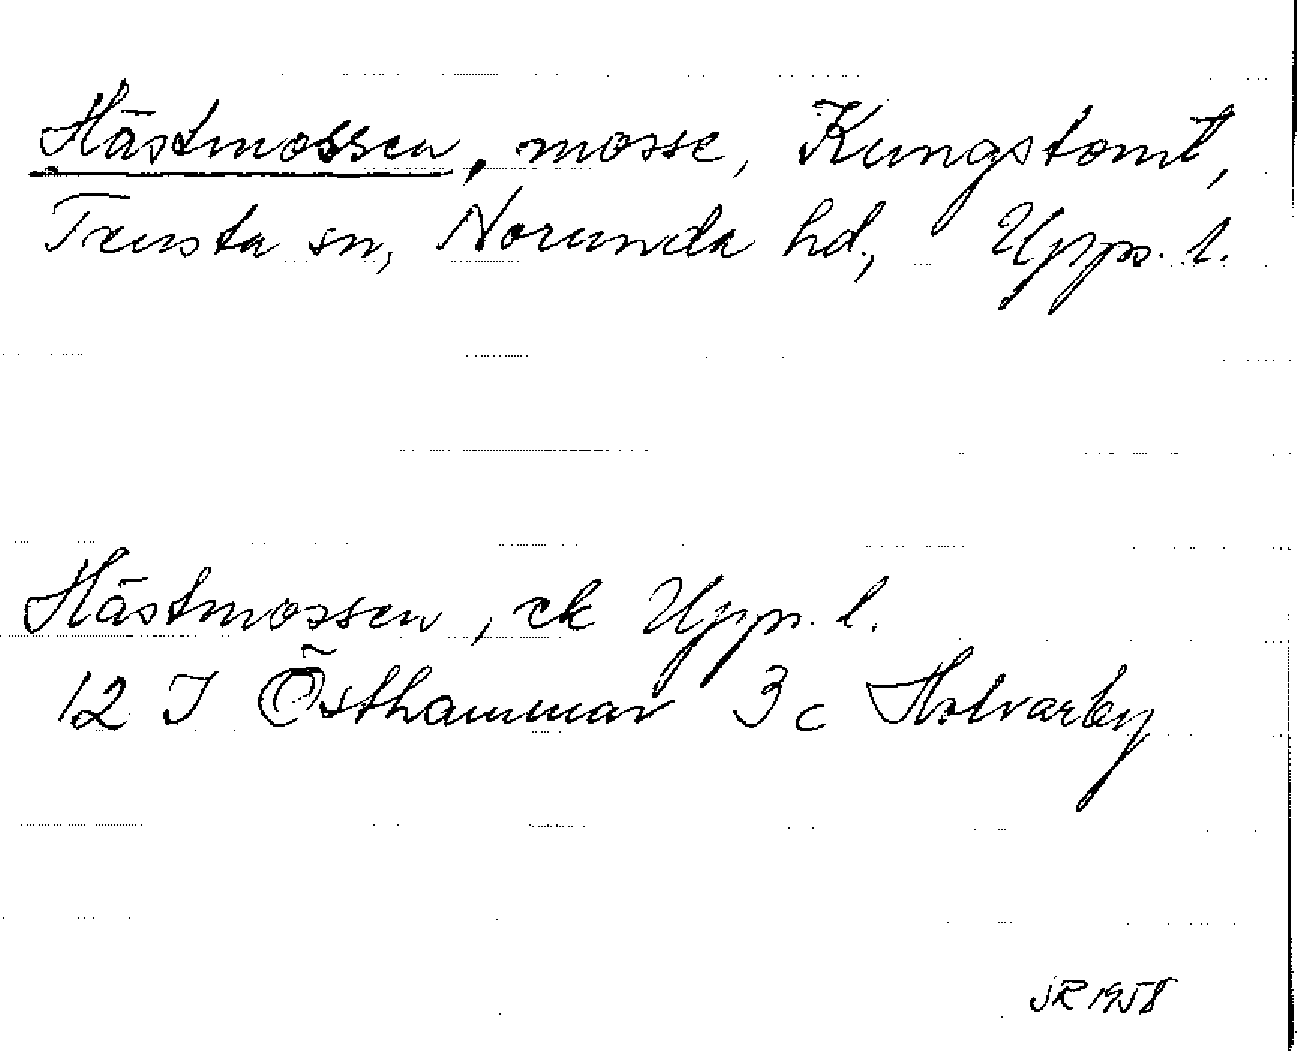 Hästmossen, mosse, Kungstomt,
Tensta sn, Norunda hd, Upps. l.
Hästmossen, ek Upps. l.
12 I Östhammar 3 c Holvarby
JR 1958